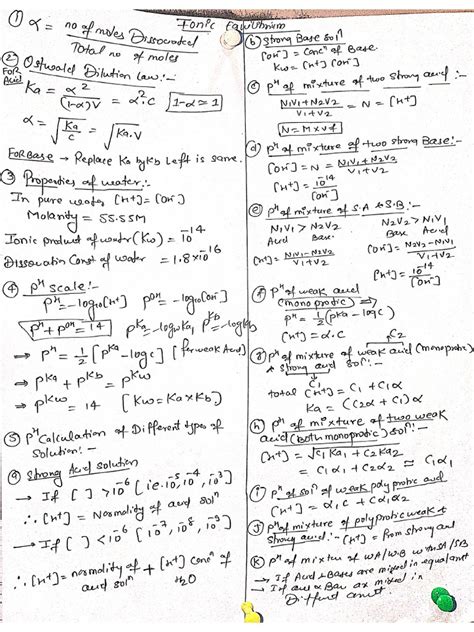 Ionic Equilibrium
① α = no of moles Dissociated / Total no of moles
② Ostwald Dilution Law:-
For Acid
Ka = α² / (1-α)V = α².C [1-α ≈ 1]
α = √Ka/C = √Ka.V
FOR BASE → Replace Ka by Kb Left is same.
③ Properties of water:-
In pure water [H+] = [OH-]
Molarity = 55.55M
Ionic product of water (Kw) = 10^-14
Dissociation Const of water = 1.8×10^-16
④ pH scale:-
pH = -log10[H+] pOH = -log10[OH-]
pH + pOH = 14
pKa = -log Ka, pKb = -log Kb
⇒ pH = 1/2 [pKa - log C] [for weak Acid]
⇒ pKa + pKb = pKw
⇒ pKw = 14 [Kw = Ka × Kb]
⑤ pH Calculation of Different types of
Solution:-
ⓐ Strong Acid Solution
→ If [ ] > 10^-6 [ie. 10^-5, 10^-4, 10^-3]
∴ [H+] = Normality of acid sol^n
→ If [ ] < 10^-6 [10^-7, 10^-8, 10^-9]
∴ [H+] = normality of acid sol^n + [H+] conc^n of H2O
ⓑ Strong Base sol^n
[OH-] = Conc^n of Base
Kw = [H+] [OH-]
ⓒ pH of mixture of two strong acid:-
N1V1 + N2V2 / V1 + V2 = N = [H+]
N = M × vf
ⓓ pH of mixture of two strong Base:-
[OH-] = N = N1V1 + N2V2 / V1 + V2
[H+] = 10^-14 / [OH-]
ⓔ pH of mixture of S.A & S.B:-
N1V1 > N2V2 N2V2 > N1V1
Acid Base Base Acid
[H+] = N1V1 - N2V2 / V1 + V2 [OH-] = N2V2 - N1V1 / V1 + V2
[H+] = 10^-14 / [OH-]
ⓕ pH of weak acid
(monoprotic) ⇒
pH = 1/2 (pKa - log C)
[H+] = α.C
ⓖ pH of mixture of weak acid (monoprotic)
C2
& strong acid sol^n:-
C1
total [H+] = C1 + C1α
Ka = (C2α + C1) α
ⓗ pH of mixture of two weak
acid (Both monoprotic) sol^n:-
[H+] = √C1Ka1 + C2Ka2
= C1α1 + C2α2 ≈ C1α1
ⓘ pH of sol^n of weak polyprotic acid
[H+] = α1C + Cα1α2
ⓙ pH of mixture of polyprotic weak &
strong acid:- [H+] = from strong acid
ⓚ pH of mixture of WA/WB with SA/SB
→ If Acid & Bases are mixed in equal amt
→ If acid & Bas are mixed in
Different amt